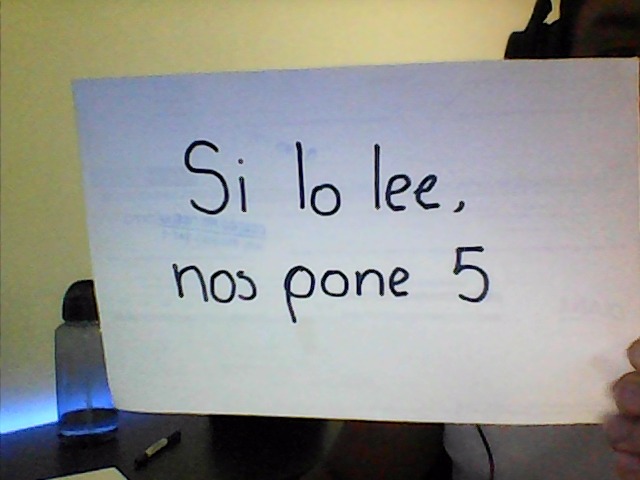 Si lo lee,
nos pone 5